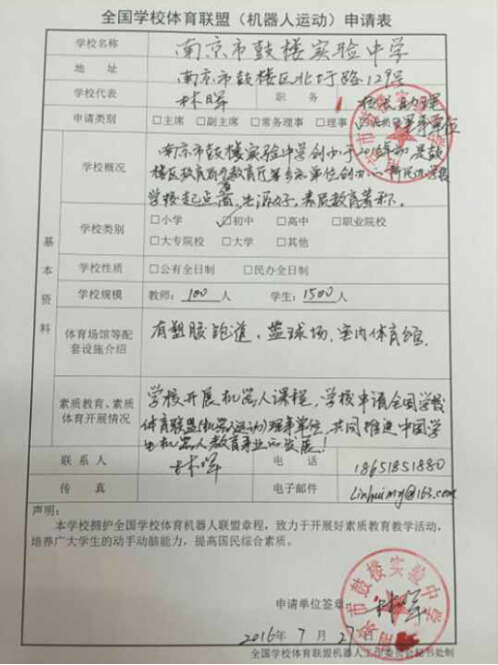 全国学校体育联盟（机器人运动）申请表
学校名称 南京市鼓楼实验中学
地 址 南京市鼓楼区北圩路129号
学校代表 林晖 职 务 校长助理
申请类别 □主席 □副主席 □常务理事 □理事
学校概况 南京市鼓楼实验中学创办于
学校起点高,生源好,素质教育著称.
学校类别 □小学 □初中 □高中 □职业院校
□大专院校 □大学 □其他
基本资料
学校性质 □公有全日制 □民办全日制
学校规模 教师: 100 人 学生: 1500 人
体育场馆等配 有塑胶跑道、篮球场,室内体育馆.
套设施介绍
素质教育、素质 学校开展机器人课程,学校申请全国学校
体育开展情况 体育联盟(机器人运动)理事单位,共同推进中国学
生机器人教育事业的发展!
联 系 人 林晖 电 话 18651851880
传 真 电子邮件 linhuimg@163.com
声明：
本学校拥护全国学校体育机器人联盟章程，致力于开展好素质教育教学活动，
培养广大学生的动手动脑能力，提高国民综合素质。
申请单位签章: 林晖
2016年 7 月 27
全国学校体育联盟机器人工作委员会秘书处制